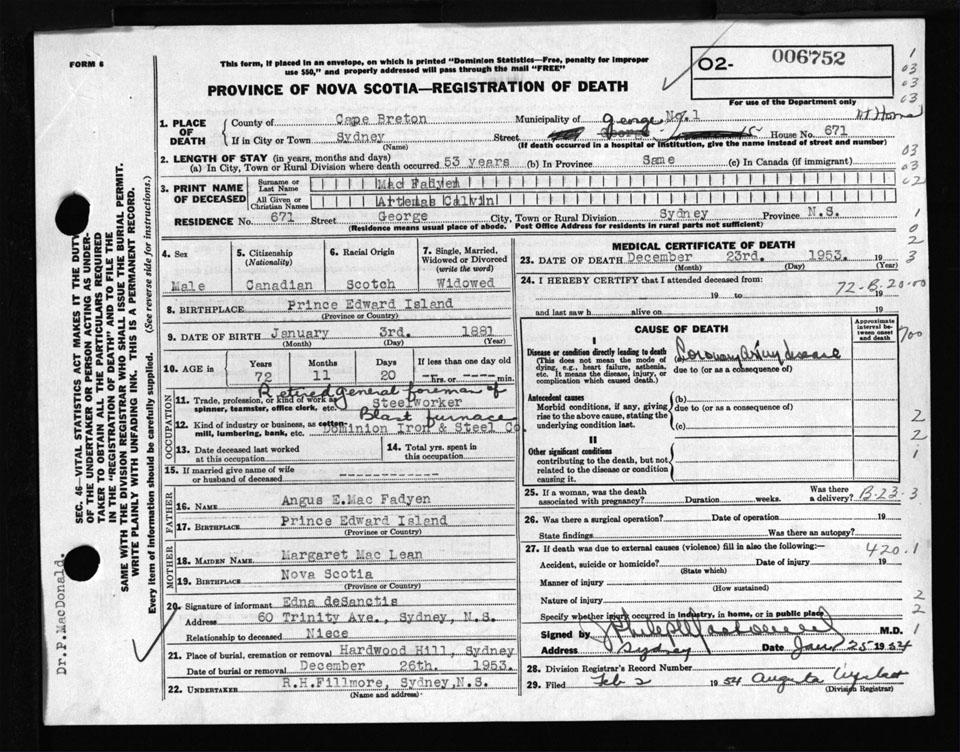 FORM 6
This form, if placed in an envelope, on which is printed "Dominion Statistics—Free, penalty for improper
use $50," and properly addressed will pass through the mail "FREE"
PROVINCE OF NOVA SCOTIA—REGISTRATION OF DEATH
O2- 006752
For use of the Department only
1. PLACE OF DEATH
County of Cape Breton Municipality of No. 1
If in City or Town Sydney Street George House No. 671
(Name) (If death occurred in a hospital or institution, give the name instead of street and number)
2. LENGTH OF STAY (in years, months and days)
(a) In City, Town or Rural Division where death occurred 53 years (b) In Province Same (c) In Canada (if immigrant)
3. PRINT NAME OF DECEASED
Surname or Last Name Mac Fadyen
All Given or Christian Names Artemas Calvin
RESIDENCE No. 671 Street George City, Town or Rural Division Sydney Province N.S.
(Residence means usual place of abode. Post Office Address for residents in rural parts not sufficient)
4. Sex Male
5. Citizenship (Nationality) Canadian
6. Racial Origin Scotch
7. Single, Married, Widowed or Divorced (write the word) Widowed
8. BIRTHPLACE Prince Edward Island
(Province or Country)
9. DATE OF BIRTH January 3rd. 1881
(Month) (Day) (Year)
10. AGE in Years 72 Months 11 Days 20 If less than one day old ---- hrs. or ---- min.
OCCUPATION
Retired general foreman of
11. Trade, profession, or kind of work as Steelworker
spinner, teamster, office clerk, etc.
Blast furnace
12. Kind of industry or business, as cotton- Dominion Iron & Steel Co.
mill, lumbering, bank, etc.
13. Date deceased last worked at this occupation
14. Total yrs. spent in this occupation
15. If married give name of wife or husband of deceased
FATHER
16. NAME Angus E.Mac Fadyen
17. BIRTHPLACE Prince Edward Island
(Province or Country)
MOTHER
18. MAIDEN NAME Margaret Mac Lean
19. BIRTHPLACE Nova Scotia
(Province or Country)
20. Signature of informant Edna deSanctis
Address 60 Trinity Ave., Sydney, N.S.
Relationship to deceased Niece
21. Place of burial, cremation or removal Hardwood Hill, Sydney
Date of burial or removal December 26th. 1953.
22. UNDERTAKER R.H.Fillmore, Sydney,N.S.
(Name and address)
MEDICAL CERTIFICATE OF DEATH
23. DATE OF DEATH December 23rd. 1953. 19
(Month) (Day) (Year)
24. I HEREBY CERTIFY that I attended deceased from:
19 to 19
and last saw h alive on 19
72-B-20-00
CAUSE OF DEATH
Approximate interval between onset and death
I
Disease or condition directly leading to death (a) Coronary Artery disease
(This does not mean the mode of dying, e.g., heart failure, asthenia, etc. It means the disease, injury, or complication which caused death.)
due to (or as a consequence of)
Antecedent causes
Morbid conditions, if any, giving rise to the above cause, stating the underlying condition last.
(b)
due to (or as a consequence of)
(c)
II
Other significant conditions
contributing to the death, but not related to the disease or condition causing it.
25. If a woman, was the death associated with pregnancy? Duration weeks. Was there a delivery? B-23-3
26. Was there a surgical operation? Date of operation 19
State findings Was there an autopsy?
27. If death was due to external causes (violence) fill in also the following:— 420.1
Accident, suicide or homicide? Date of injury 19
(State which)
Manner of injury
(How sustained)
Nature of injury
Specify whether injury occurred in industry, in home, or in public place
Signed by M.D.
Address Sydney Date Jan 25 1954
28. Division Registrar's Record Number
29. Filed Feb 2 1954 Augusta
(Division Registrar)
SEC. 46—VITAL STATISTICS ACT MAKES IT THE DUTY
OF THE UNDERTAKER OR PERSON ACTING AS UNDER-
TAKER TO OBTAIN ALL THE PARTICULARS REQUIRED
IN THE "REGISTRATION OF DEATH" AND TO FILE THE
SAME WITH THE DIVISION REGISTRAR WHO SHALL ISSUE THE BURIAL PERMIT.
WRITE PLAINLY WITH UNFADING INK. THIS IS A PERMANENT RECORD.
Every item of information should be carefully supplied. (See reverse side for instructions.)
Dr.P.MacDonald.